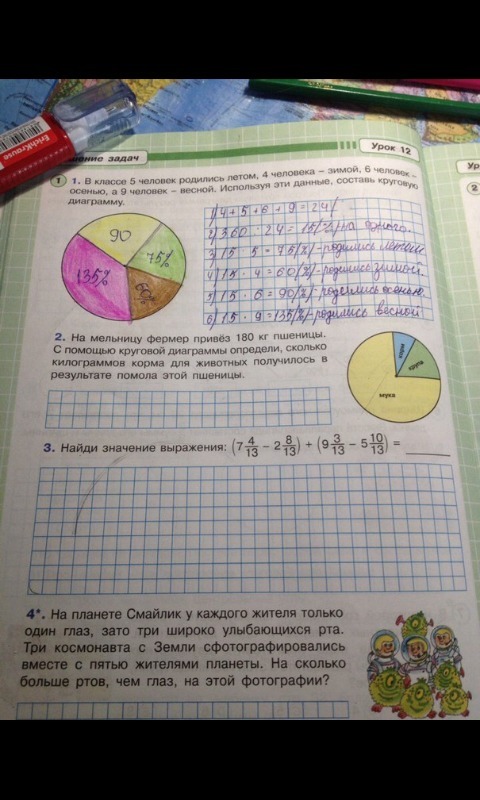 ErichKrause
шение задач
Урок 12
Ур
1
1. В классе 5 человек родились летом, 4 человека – зимой, 6 человек –
осенью, а 9 человек – весной. Используя эти данные, составь круговую
диаграмму.
2
90
75%
60%
135%
1) 4 + 5 + 6 + 9 = 24
2) 360 : 24 = 15(%) на одного.
3) 15 · 5 = 75(%) - родились летом
4) 15 · 4 = 60(%) - родились зимой.
5) 15 · 6 = 90(%) - родились осенью.
6) 15 · 9 = 135(%) - родились весной
2. На мельницу фермер привёз 180 кг пшеницы.
С помощью круговой диаграммы определи, сколько
килограммов корма для животных получилось в
результате помола этой пшеницы.
корм
крупа
мука
3. Найди значение выражения: (7 4/13 – 2 8/13) + (9 3/13 – 5 10/13) =
4*. На планете Смайлик у каждого жителя только
один глаз, зато три широко улыбающихся рта.
Три космонавта с Земли сфотографировались
вместе с пятью жителями планеты. На сколько
больше ртов, чем глаз, на этой фотографии?